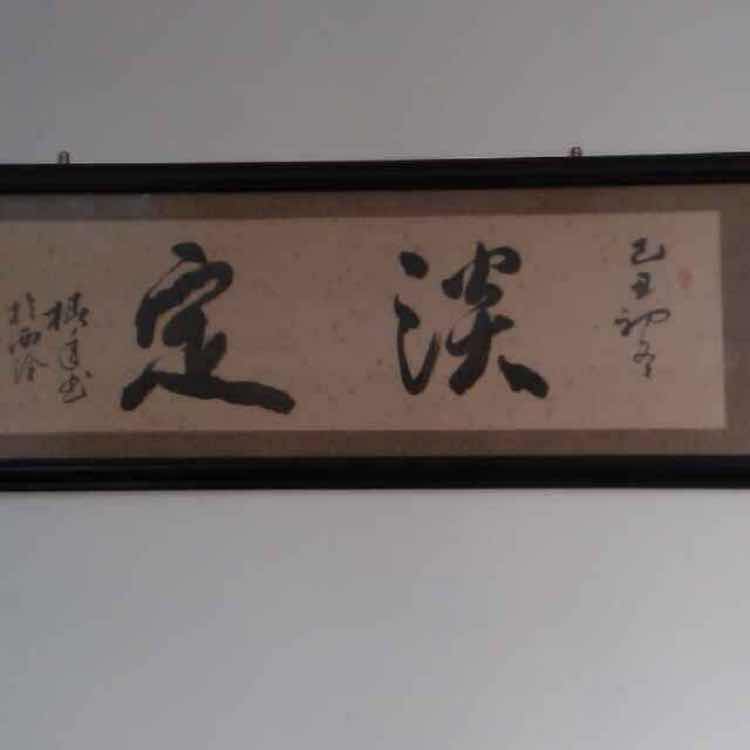 己丑初冬
淡定
書
於西泠